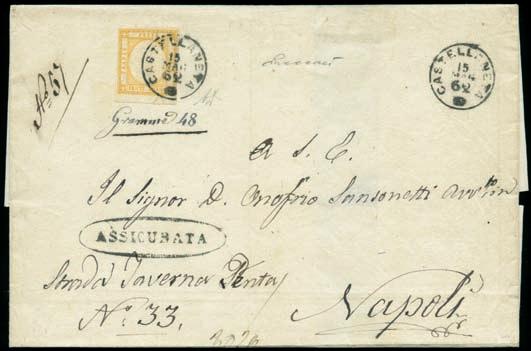 CASTELLANETA
15
MAG
62
CASTELLANETA
15
MAG
62
No 67
Gramme 48
A S. E.
Il Signor D. Onofrio Sansonetti
ASSICURATA
Strada Taverna Penta
No 33.
Napoli